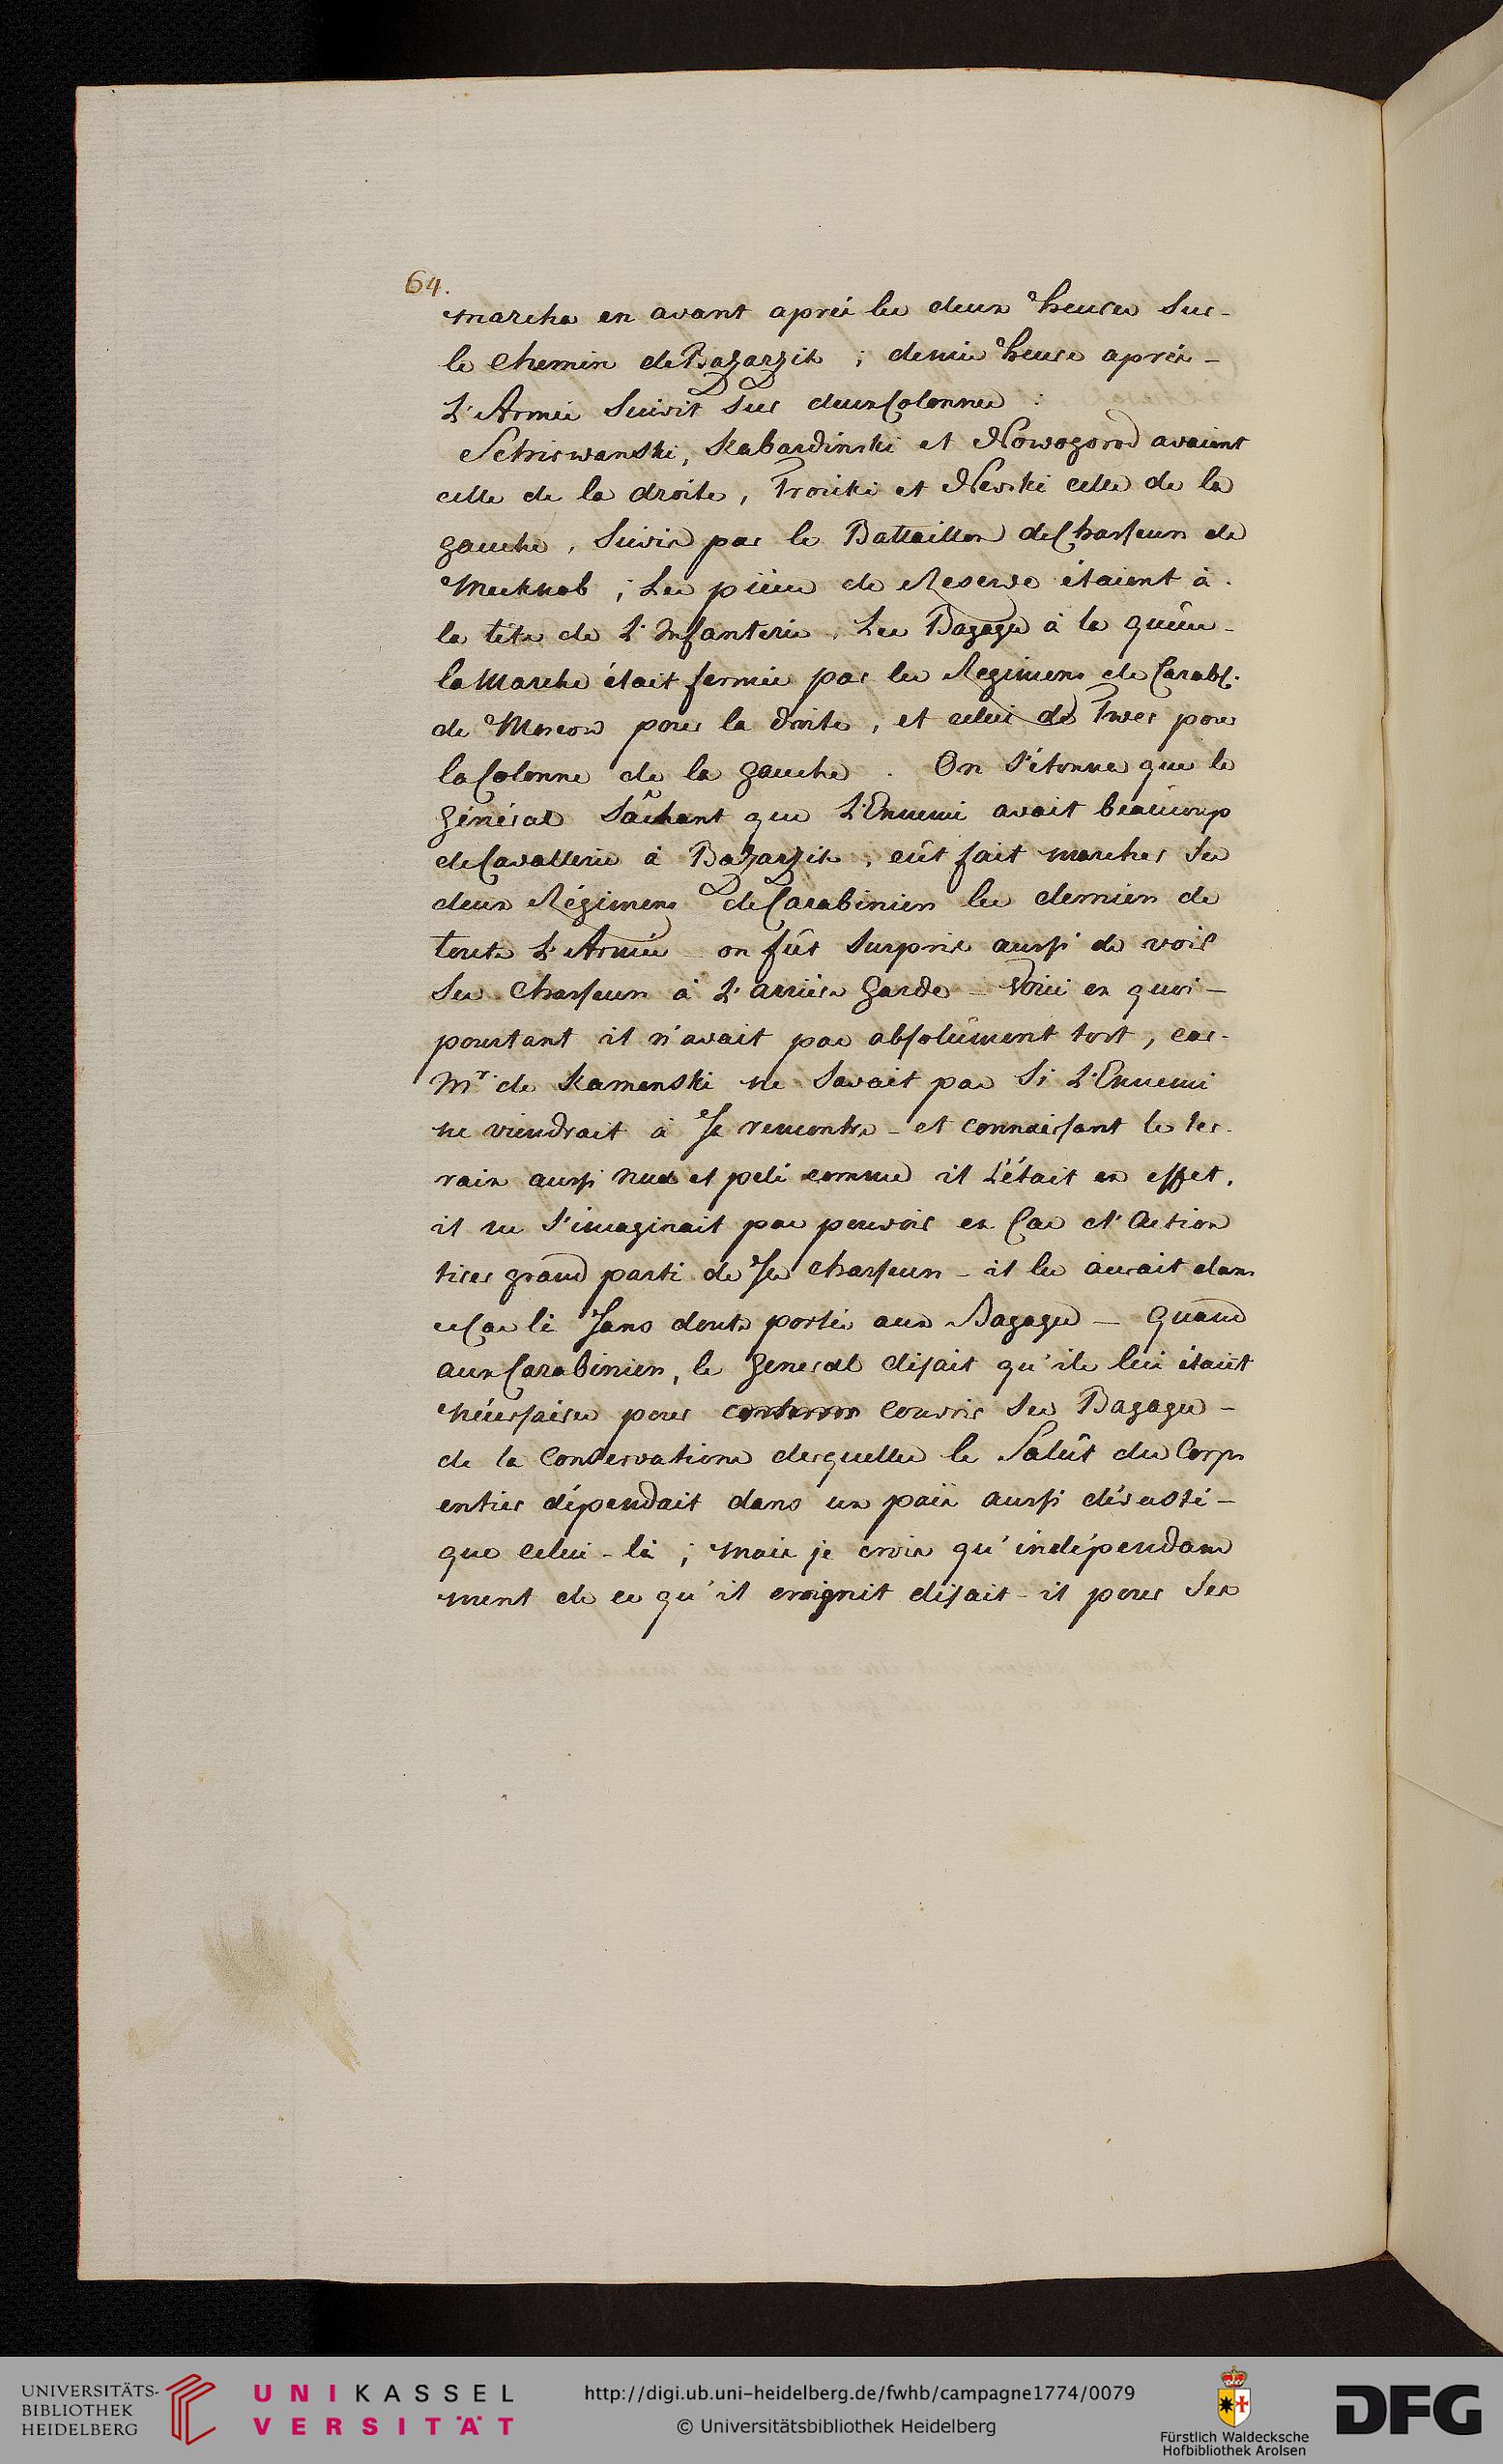 64.
marche en avant après les deux heures sur-
le chemin de Bazarzik ; demie heure après -
L'Armée suivit sur deux Colonnes :
Schirwanski, Kabardinski et Nowogorod avaient
celle de la droite, Troitki et Newski celle de la
gauche, suivis par le Battaillon de Chasseurs de
Meeknob ; Les pièces de Reserve étaient à
la tête de L'Infanterie. Les Bagages à la queüe -
la Marche était fermée par les Regimens de Carab:
de Moscow pour la droite, et celui de Twer pour
la Colonne de la gauche . On s'étonna que le
Général sâchant que L'Ennemi avait beaucoup
de Cavallerie à Bazarzik, eût fait marcher ses
deux Régimens de Carabiniers les derniers de
toute L'Armée on fût surpris aussi de voir
ses Chasseurs à L'arrière garde - Voici en quoi -
pourtant il n'avait pas absolûment tort, car-
Mr. de Kamenski ne savait pas si L'Ennemi
ne viendrait à sa rencontre - et connaissant le ter-
rain aussi nud et pelé comme il L'était en effet,
il ne s'imaginait pas pouvoir en Cas d'Action
tirer grand parti de ses Chasseurs - il les aurait dans
ce Cas là sans doute portés aux Bagages - Quand
aux Carabiniers, le General disait qu'ils lui étaient
nécessaires pour couvrir ses Bagages -
de la Conservation desquelles le Salût du Corps
entier dépendait dans un païs aussi dévasté -
que celui-là ; mais je crois qu'indépendam
ment de ce qu'il craignit disait-il pour ses
UNIVERSITÄTS-
BIBLIOTHEK
HEIDELBERG
UNIKASSEL
VERSITÄT
http://digi.ub.uni-heidelberg.de/fwhb/campagne1774/0079
© Universitätsbibliothek Heidelberg
Fürstlich Waldecksche
Hofbibliothek Arolsen
DFG